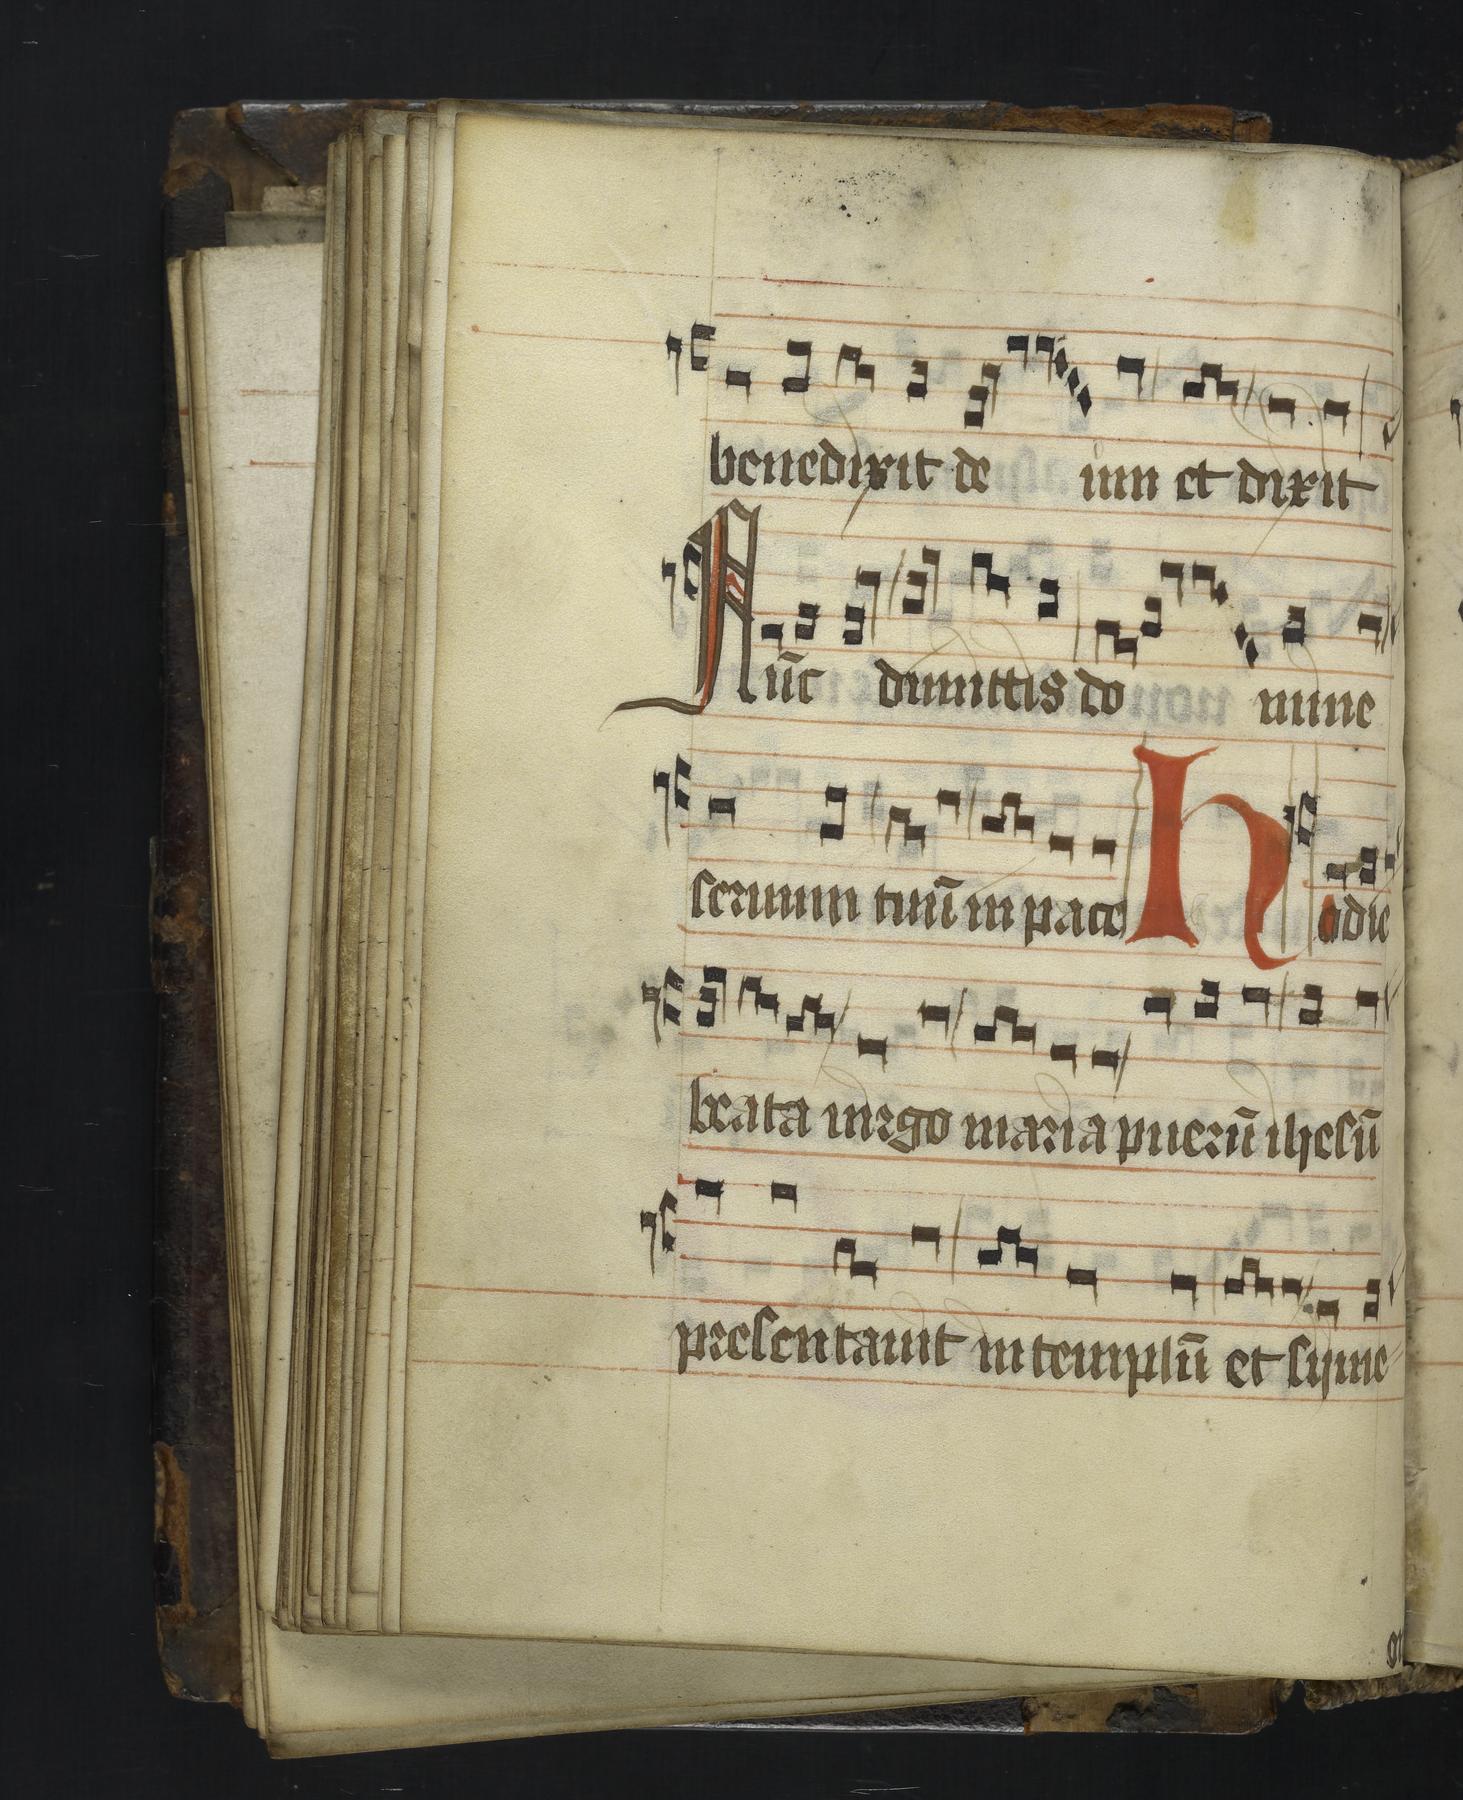 benedixit deum et dixit
Nūc dimittis domine
seruum tuū in pace hodie
beata uirgo maria puerū ihesū
presentauit in templū et syme